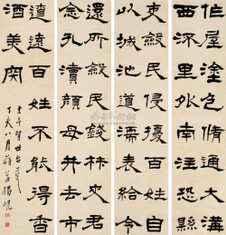 作屋塗色脩通大溝
西流里外南注恐縣
吏斂民侵擾百姓自
以城池道濡麥給令
還所斂民錢材史君
念孔瀆顏母井去市
遼遠百姓不能得香
酒美肉
丁亥八月